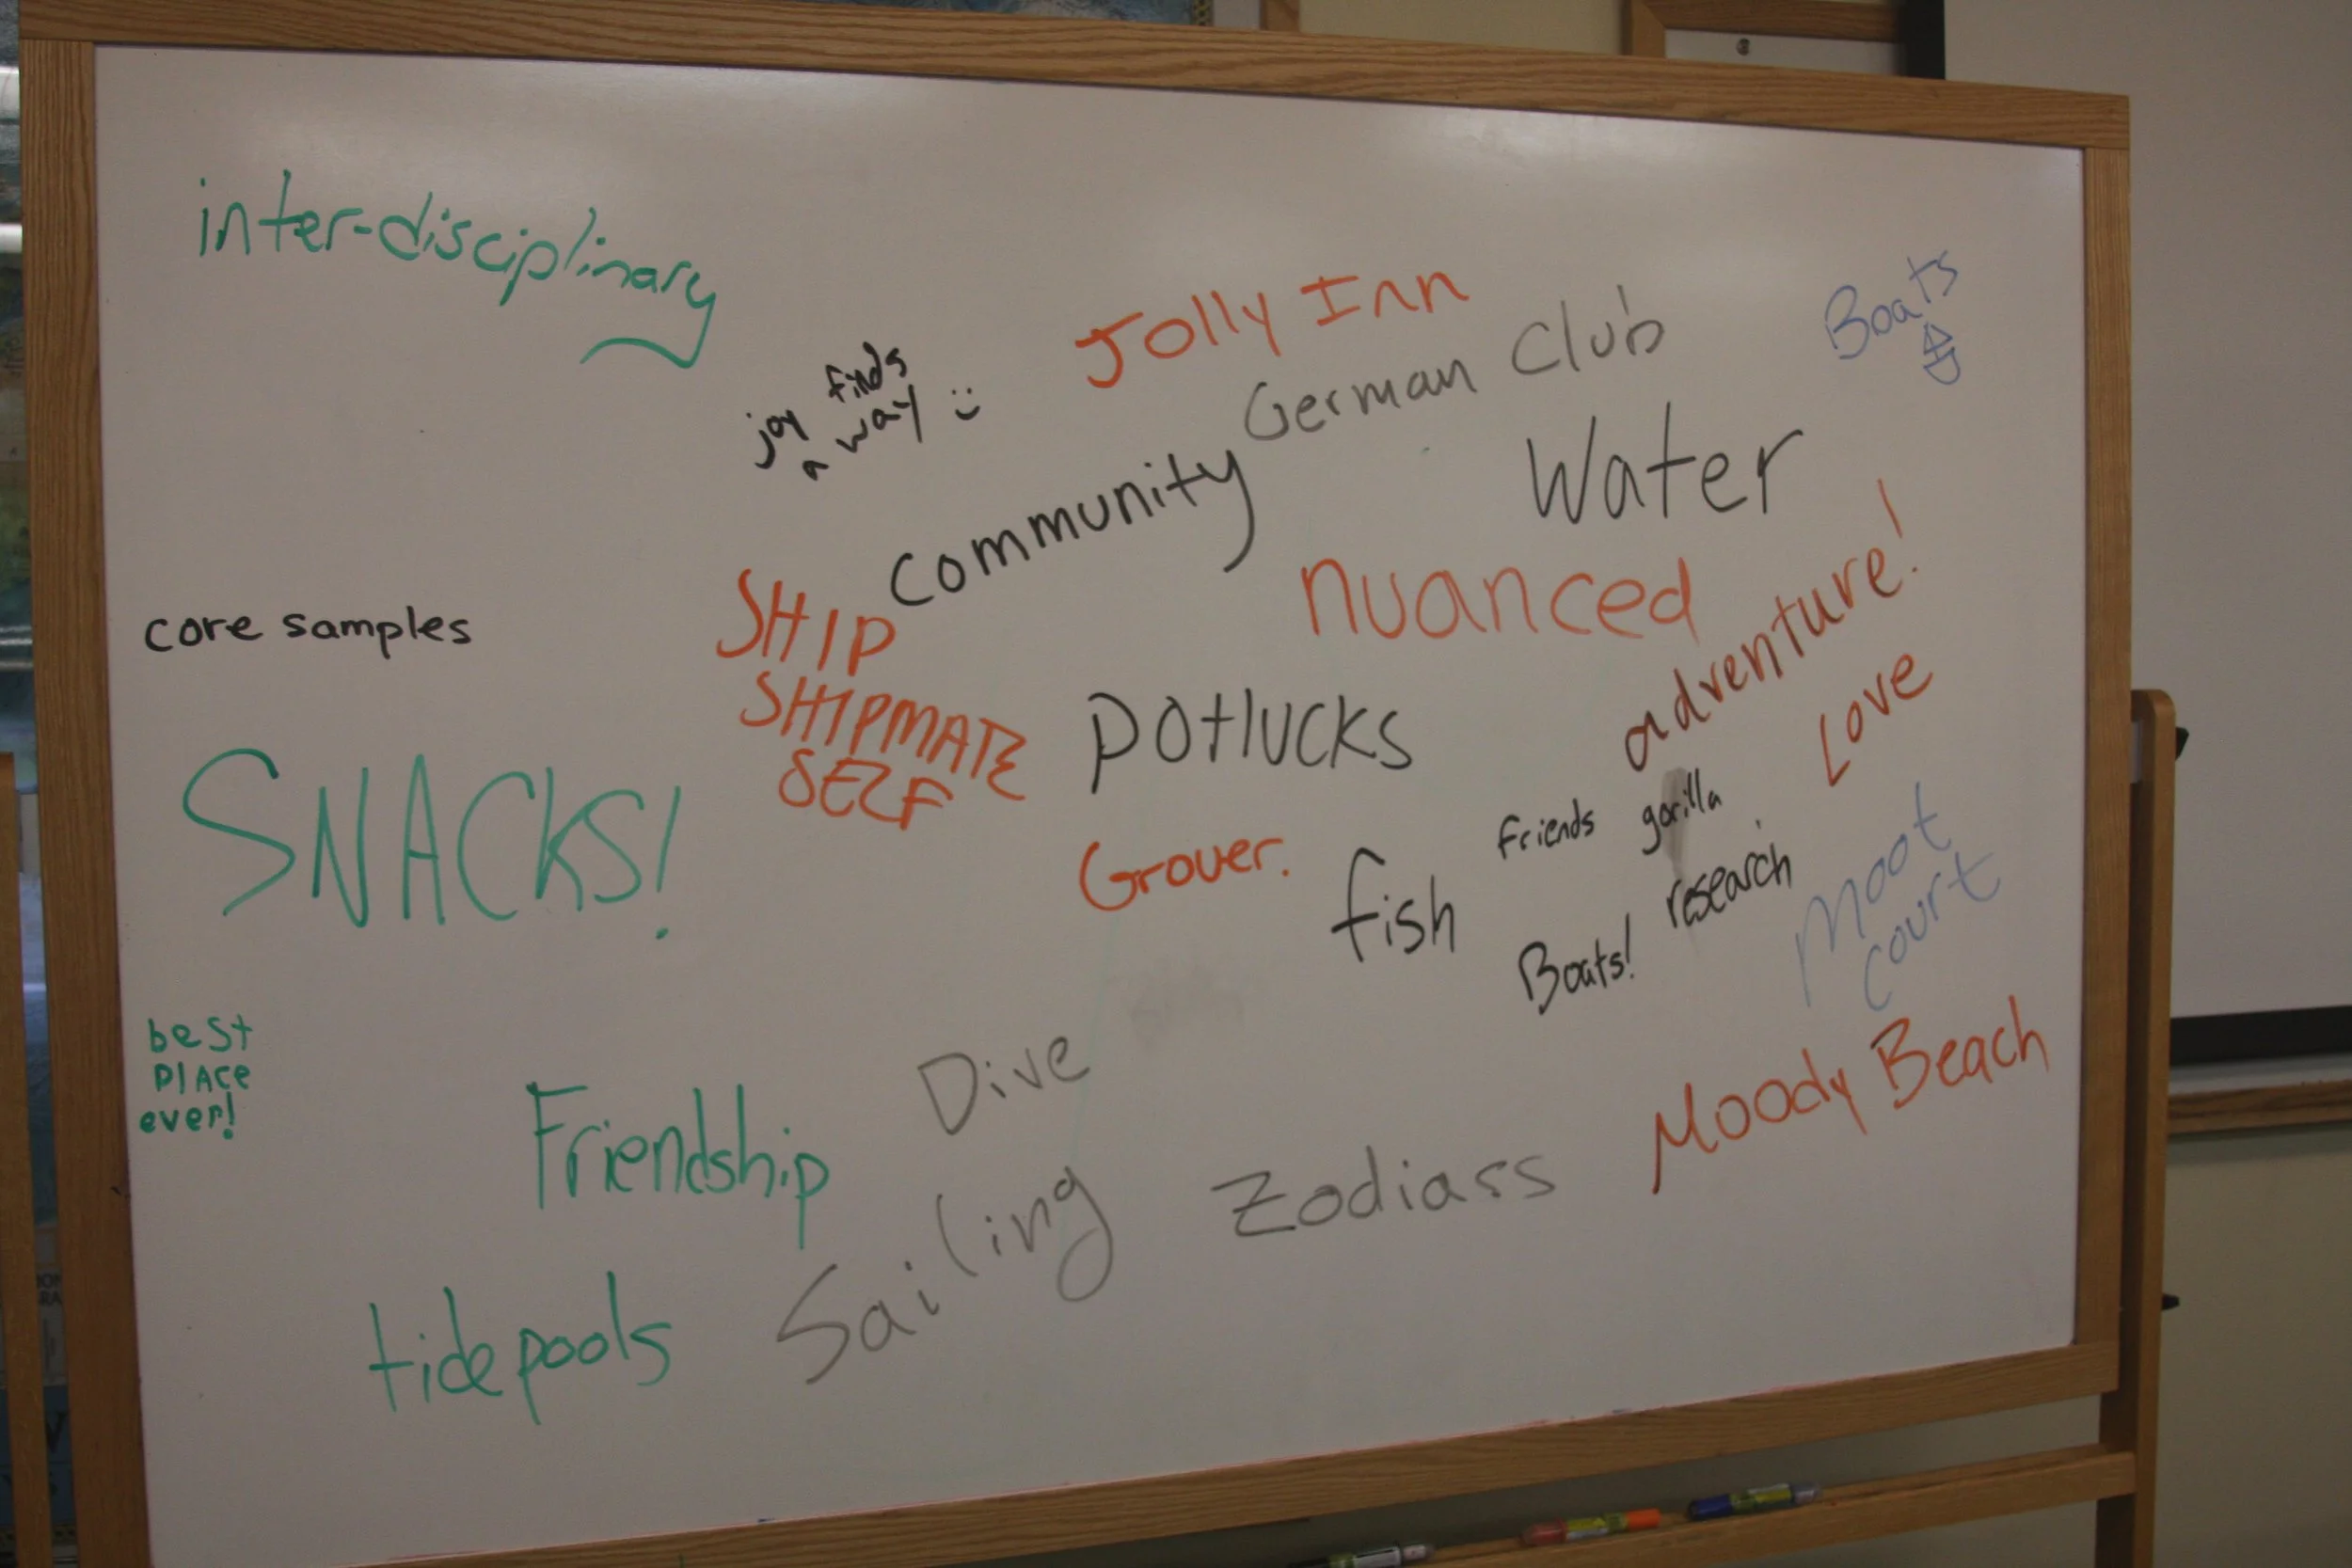 inter-disciplinary
Jolly Inn
Boats
German Club
joy finds
a way :)
Community
Water
nuanced
adventure!
core samples
SHIP
SHIPMATE
SELF
Potlucks
Love
SNACKS!
Grover.
fish
friends
gorilla
research
Boats!
Moot
Court
best
PlAce
ever!
Friendship
Dive
Moody Beach
Sailing
Zodiass
tidepools